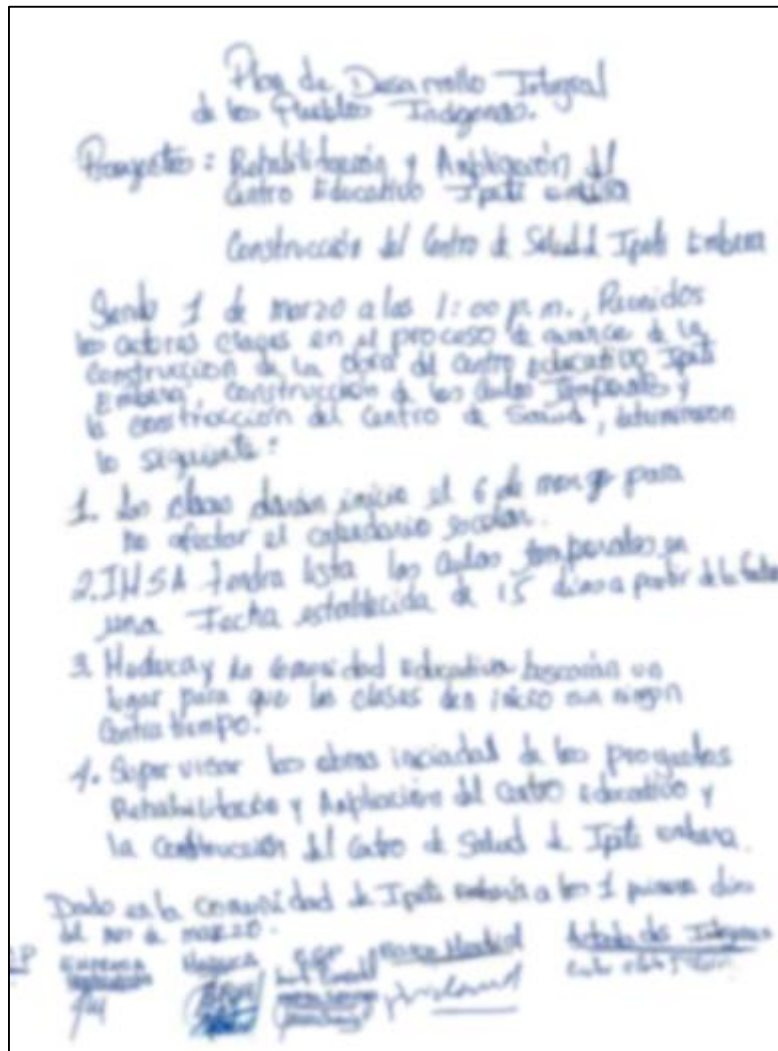 Plan de Desarrollo Integral
de los Pueblos Indígenas.
Proyectos: Rehabilitación y Ampliación del
Centro Educativo Ipeti Embera
Construcción del Centro de Salud Ipeti Embera
Siendo 1 de marzo a las 1:00 p.m., Reunidos
los actores claves en el proceso de avance de la
construccion de la obra del centro educativo Ipeti
Embera, construcción de las aulas temporales y
la construcción del Centro de Salud, determinaron
lo siguiente:
1. Las clases darán inicio el 6 de marzo para
no afectar el calendario escolar.
2. IMSA tendra lista las aulas temporales en
una Fecha establecida de 15 dias a partir de la fecha
3. Meduca y la comunidad Educativa buscarán un
lugar para que las clases den inicio sin ningún
Contratiempo.
4. Supervisar las obras iniciadas de los proyectos
Rehabilitación y Ampliación del Centro Educativo y
la Construcción del Centro de Salud de Ipeti embera.
Dado en la comunidad de Ipeti embera a los 1 primer dias
del mes de marzo.
Empresa Meduca Banco Mundial